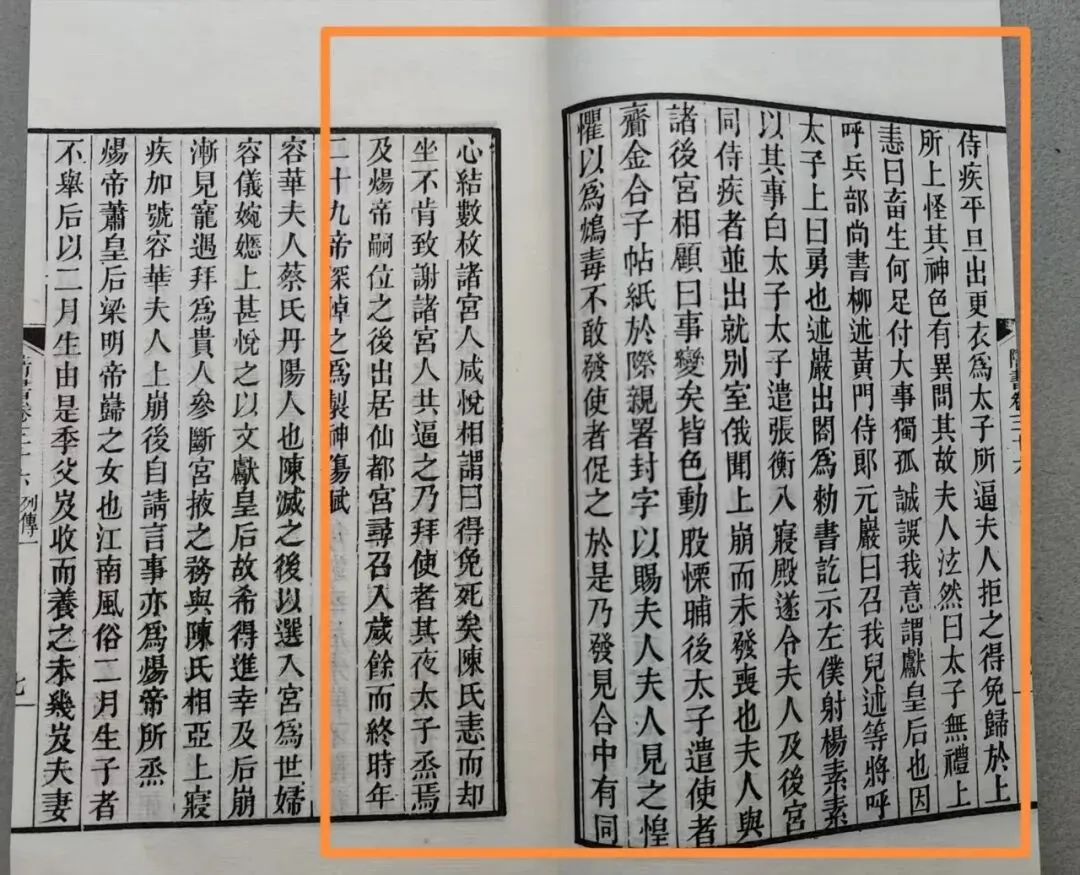 侍疾平旦出更衣爲太子所逼夫人拒之得免歸於上
所上怪其神色有異問其故夫人泫然曰太子無禮上
恚曰畜生何足付大事獨孤誠誤我意謂獻皇后也因
呼兵部尚書柳述黃門侍郎元巖曰召我兒述等將呼
太子上曰勇也述巖出閤爲勑書訖示左僕射楊素素
以其事白太子太子遣張衡入寢殿遂令夫人及後宮
同侍疾者並出就別室俄聞上崩而未發喪也夫人與
諸後宮相顧曰事變矣皆色動股慄晡後太子遣使者
齎金合子帖紙於際親署封字以賜夫人夫人見之惶
懼以爲鴆毒不敢發使者促之於是乃發見合中有同
心結數枚諸宮人咸悅相謂曰得免死矣陳氏恚而却
坐不肯致謝諸宮人共逼之乃拜使者其夜太子烝焉
及煬帝嗣位之後出居仙都宮尋召入歲餘而終時年
二十九帝深悼之爲製神傷賦
容華夫人蔡氏丹陽人也陳滅之後以選入宮爲世婦
容儀婉嫕上甚悅之以文獻皇后故希得進幸及后崩
漸見寵遇拜爲貴人參斷宮掖之務與陳氏相亞上寢
疾加號容華夫人上崩後自請言事亦爲煬帝所烝
煬帝蕭皇后梁明帝巋之女也江南風俗二月生子者
不舉后以二月生由是季父岌收而養之未幾岌夫妻
隋書卷三十六 列傳一
七